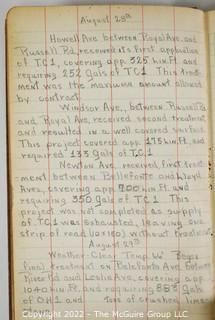 August 28th
Howell Ave between Royal Ave. and
Russell Rd, received its first application
of TC1, covering app. 325 lin. Ft. and
requiring 252 Gals of TC1 This treat-
ment was the maximum amount allowed
by contract
Windsor Ave., between Russell Rd
and Royal Ave, received second treatment
and resulted in a well covered surface.
This project covered app. 175 lin. ft., and
required 133 Gals. TC1.
Newton Ave, received first treat-
ment between Bellefonte and Lloyd
Aves, covering app 700 lin. Ft and
requiring 350 gals of TC1 This
project was not completed as supply
of TC1 was exhausted, leaving one
strip of road without treatment
August 29th
Weather-Clear Temp. 66° Began
final treatment on Bellefonte Ave. between
River Rd and Leslie Ave, covering app
1040 lin. Ft, and requiring 883 Gals
of OH1 and Tons of crushed lime
Copyright 2022 - The McGuire Group LLC